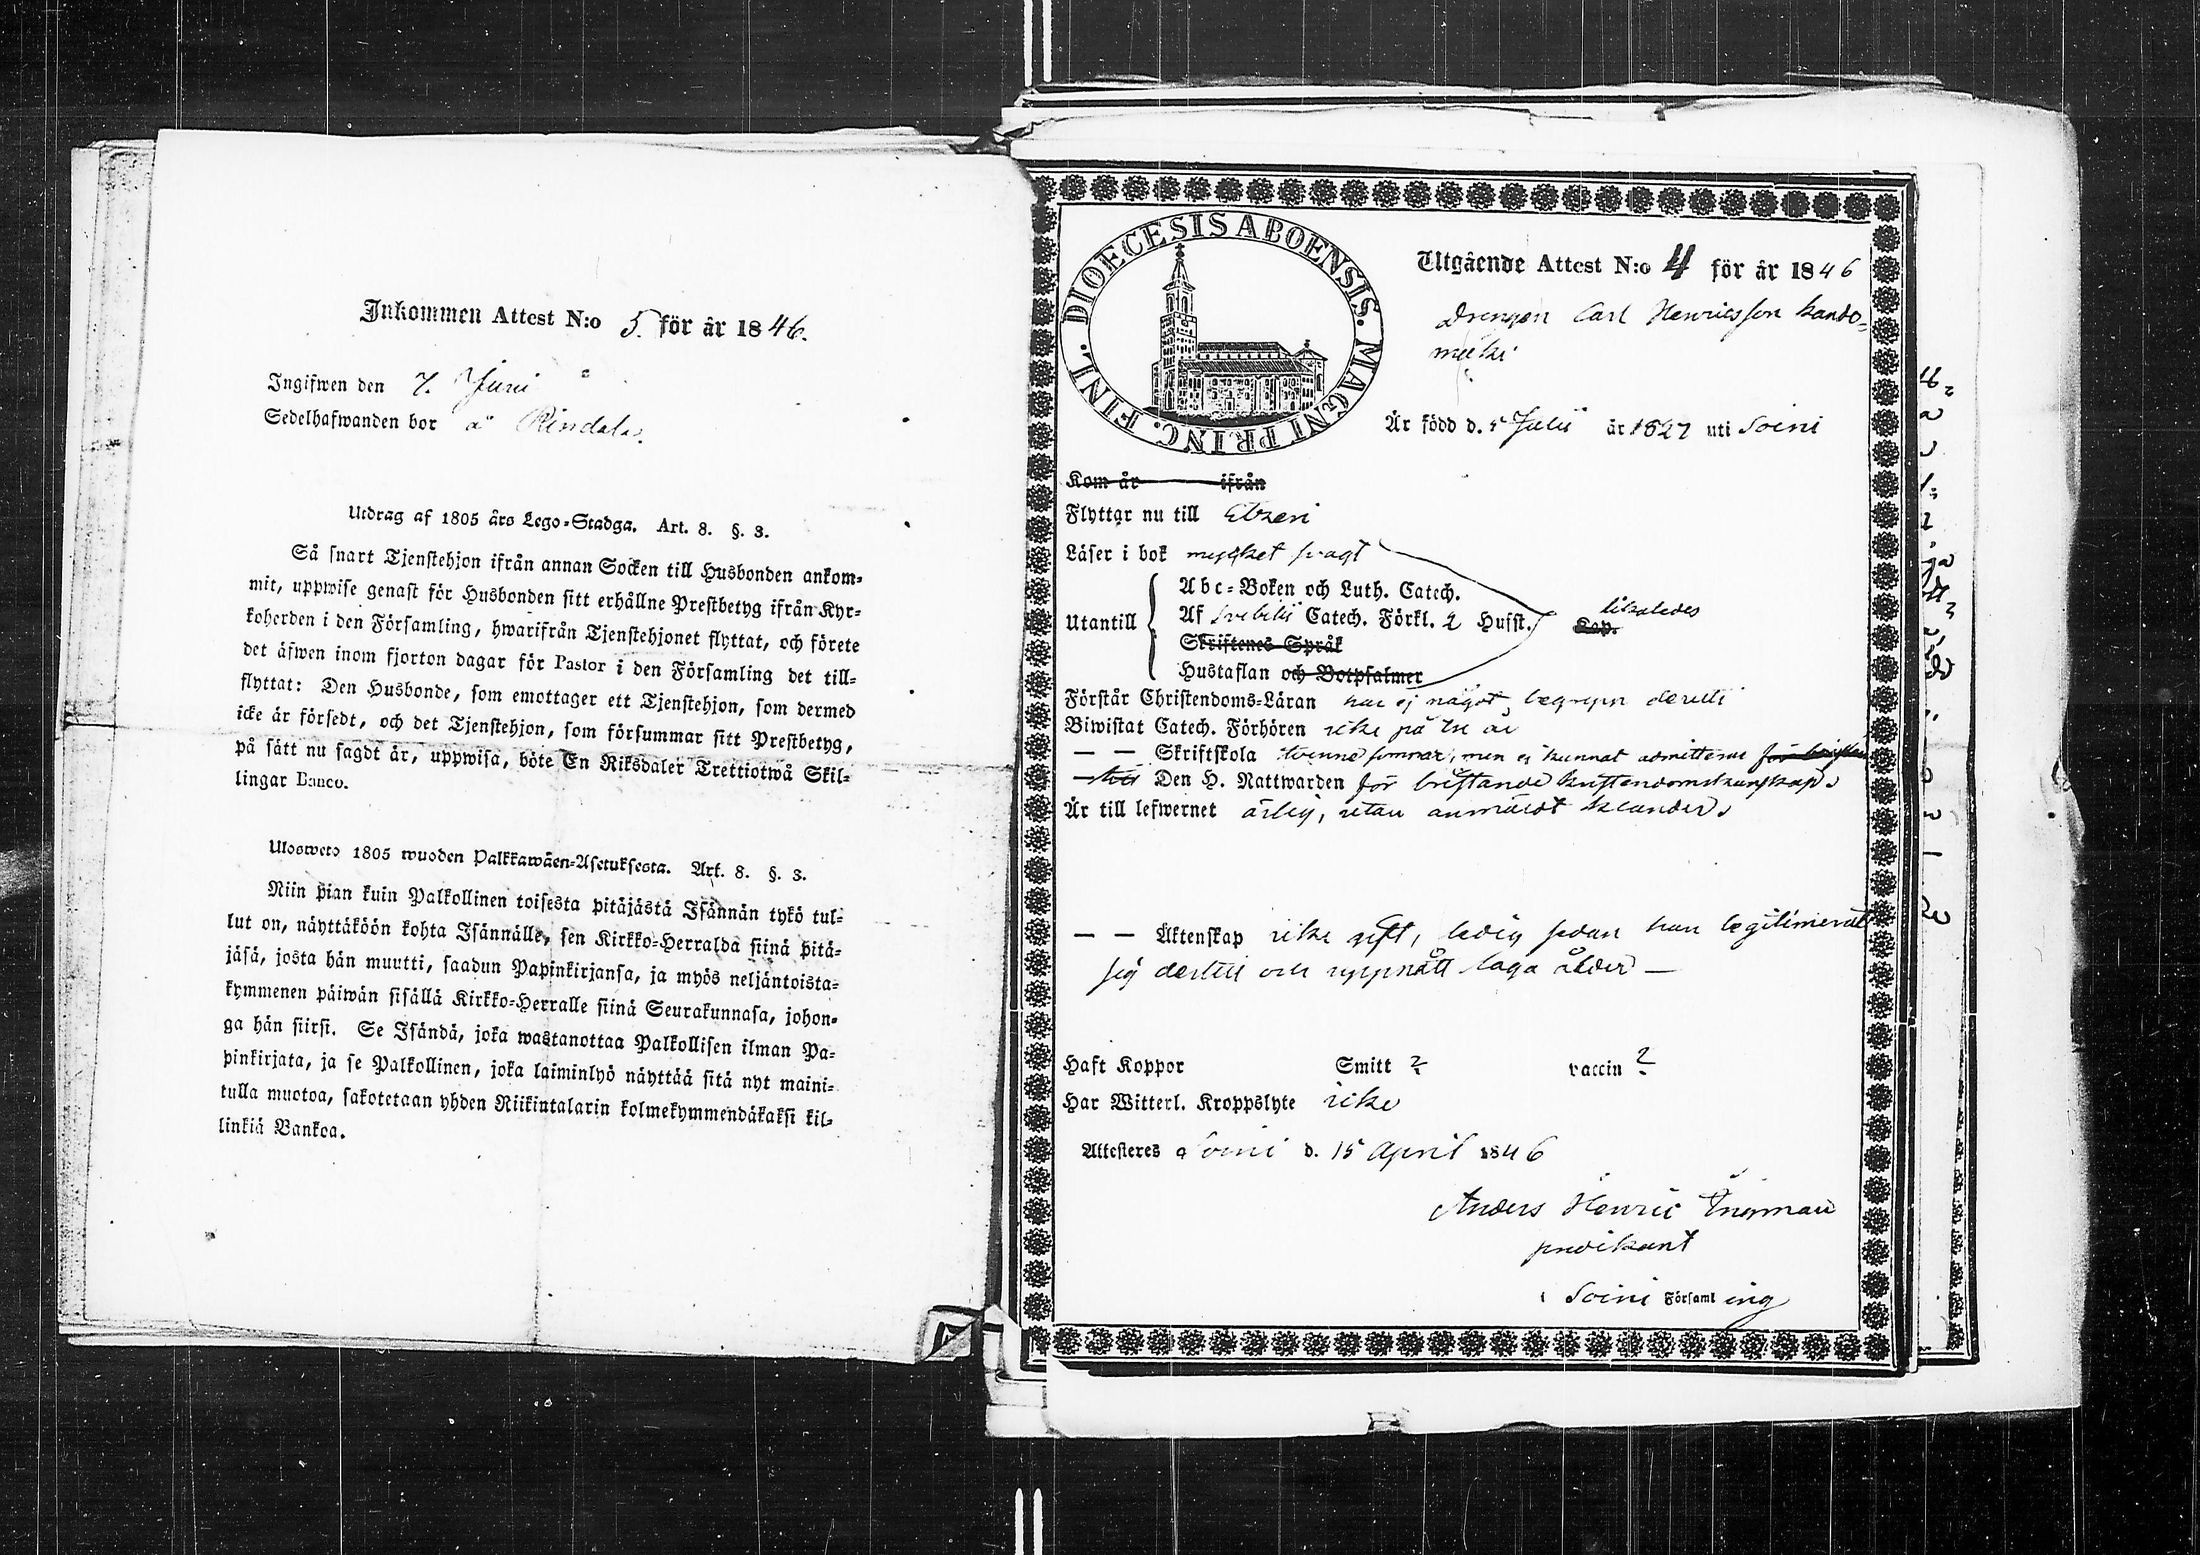 Inkommen Attest N:o 5. för år 1846.
Ingifwen den 7. Juni
Sedelhafwanden bor å Rindala.
Utdrag af 1805 års Lego-Stadga. Art. 8. §. 3.
Så snart Tjenstehjon ifrån annan Socken till Husbonden ankom-
mit, uppwise genast för Husbonden sitt erhållne Prestbetyg ifrån Kyr-
koherden i den Församling, hwarifrån Tjenstehjonet flyttat, och förete
det äfwen inom fjorton dagar för Pastor i den Församling det till-
flyttat: Den Husbonde, som emottager ett Tjenstehjon, som dermed
icke är försedt, och det Tjenstehjon, som försummar sitt Prestbetyg,
på sätt nu sagdt är, uppwisa, böte En Riksdaler Trettiotwå Skil-
lingar Banco.
Ulosweto 1805 wuoden Palkkawäen-Asetuksesta. Art. 8. §. 3.
Niin pian kuin Palkollinen toisesta pitäjästä Isännän tykö tul-
lut on, näyttäköön kohta Isännälle, sen Kirkko-Herralda siinä pitä-
jäsä, josta hän muutti, saadun Papinkirjansa, ja myös neljäntoista-
kymmenen päiwän sisällä Kirkko-Herralle siinä Seurakunnasa, johon-
ga hän siirsi. Se Isändä, joka wastanottaa Palkollisen ilman Pa-
pinkirjata, ja se Palkollinen, joka laiminlyö näyttää sitä nyt maini-
tulla muotoa, sakotetaan yhden Riikintalarin kolmekymmendäkaksi kil-
linkiä Bankoa.
DIOECESIS ABOENSIS. MAGNI PRINC. FINL.
Utgående Attest N:o 4 för år 1846
Drengen Carl Henricsson Kando-
mäki
Är född d. 5 Julii år 1827 uti Soini
Kom år ifrån
Flyttar nu till Etzeri
Läser i bok mycket svagt
Abc-Boken och Luth. Catech.
Utantill Af Svebilii Catech. Förkl. 2 Husst. Kap. likaledes
Skriftenes Språk
Hustaflan och Botpsalmer
Förstår Christendoms-Läran har ej något begrepp dertill
Biwistat Catech. Förhören icke på tre år
— — Skriftskola tvenne somrar, men ej kunnat admitteras för bristande
Den H. Nattwarden för bristande kristendomskunskap.
Är till lefwernet ärlig, utan anmärdt klander.
— — Äktenskap icke gift, ledig sedan han legitimerat
sig dertill och uppnått laga ålder —
Haft Koppor Smitt ? vaccin ?
Har Witterl. Kroppslyte icke
Attesteres i Soini d. 15 April 1846
Anders Henric
predikant
i Soini Församling